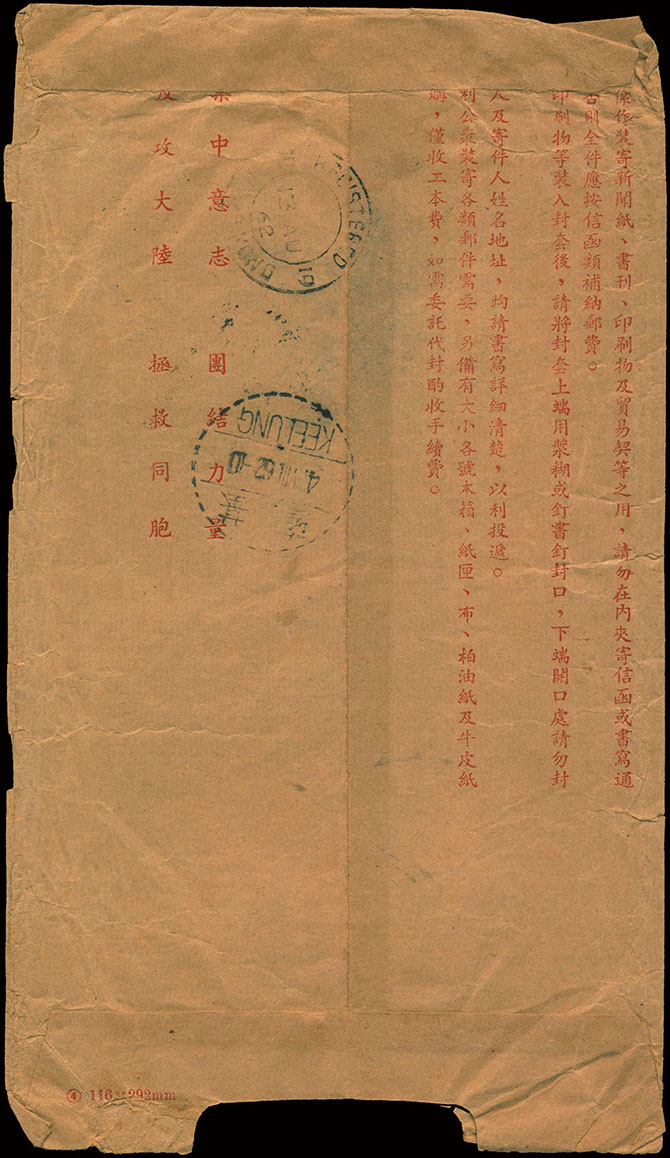 係作裝寄新聞紙、書刊、印刷物及貿易契等之用，請勿在內夾寄信函或書寫通
否則全件應按信函類補納郵費。
印刷物等裝入封套後，請將封套上端用漿糊或釘書釘封口，下端開口處請勿封
人及寄件人姓名地址，均請書寫詳細清楚，以利投遞。
利公眾裝寄各類郵件需要，另備有大小各號木箱、紙匣、布、柏油紙及牛皮紙
購，僅收工本費，如需委託代封酌收手續費。
集中意志 團結力量
反攻大陸 拯救同胞
REGISTERED
62
KEELUNG
4.VIII.62-10
基
④ 116×292mm